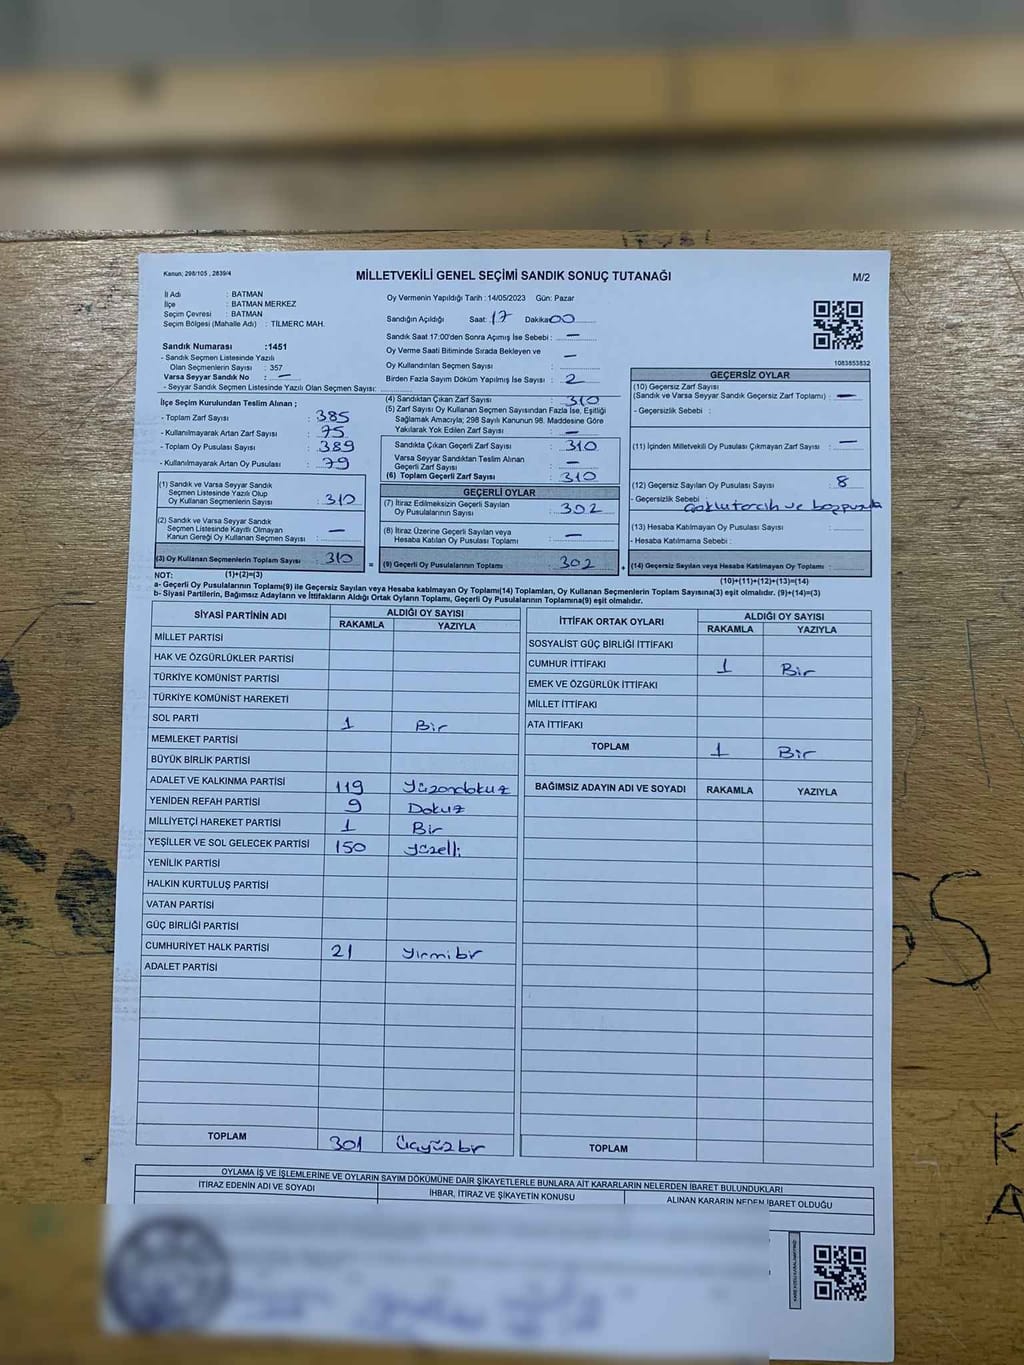 Kanun; 298/105 , 2839/4
MİLLETVEKİLİ GENEL SEÇİMİ SANDIK SONUÇ TUTANAĞI
M/2
İl Adı : BATMAN
İlçe : BATMAN MERKEZ
Seçim Çevresi : BATMAN
Seçim Bölgesi (Mahalle Adı) : TİLMERC MAH.
Sandık Numarası :1451
- Sandık Seçmen Listesinde Yazılı
Olan Seçmenlerin Sayısı : 357
Varsa Seyyar Sandık No : —
- Seyyar Sandık Seçmen Listesinde Yazılı Olan Seçmen Sayısı:
İlçe Seçim Kurulundan Teslim Alınan ;
- Toplam Zarf Sayısı : 385
- Kullanılmayarak Artan Zarf Sayısı : 75
- Toplam Oy Pusulası Sayısı : 389
- Kullanılmayarak Artan Oy Pusulası : 79
(1) Sandık ve Varsa Seyyar Sandık
Seçmen Listesinde Yazılı Olup
Oy Kullanan Seçmenlerin Sayısı : 310
(2) Sandık ve Varsa Seyyar Sandık
Seçmen Listesinde Kayıtlı Olmayan
Kanun Gereği Oy Kullanan Seçmen Sayısı : —
(3) Oy Kullanan Seçmenlerin Toplam Sayısı : 310
(1)+(2)=(3)
Oy Vermenin Yapıldığı Tarih : 14/05/2023 Gün: Pazar
Sandığın Açıldığı Saat: 17 Dakika 00
Sandık Saat 17:00'den Sonra Açımış İse Sebebi : —
Oy Verme Saati Bitiminde Sırada Bekleyen ve
Oy Kullandırılan Seçmen Sayısı : —
Birden Fazla Sayım Döküm Yapılmış İse Sayısı : 2
(4) Sandıktan Çıkan Zarf Sayısı : 310
(5) Zarf Sayısı Oy Kullanan Seçmen Sayısından Fazla İse, Eşitliği
Sağlamak Amacıyla; 298 Sayılı Kanunun 98. Maddesine Göre
Yakılarak Yok Edilen Zarf Sayısı : —
Sandıkta Çıkan Geçerli Zarf Sayısı : 310
Varsa Seyyar Sandıktan Teslim Alınan
Geçerli Zarf Sayısı : —
(6) Toplam Geçerli Zarf Sayısı : 310
=
GEÇERLİ OYLAR
(7) İtiraz Edilmeksizin Geçerli Sayılan
Oy Pusulalarının Sayısı : 302
(8) İtiraz Üzerine Geçerli Sayılan veya
Hesaba Katılan Oy Pusulası Toplamı : —
(9) Geçerli Oy Pusulalarının Toplamı : 302
+
1083853832
GEÇERSİZ OYLAR
(10) Geçersiz Zarf Sayısı
(Sandık ve Varsa Seyyar Sandık Geçersiz Zarf Toplamı) : —
- Geçersizlik Sebebi :
(11) İçinden Milletvekili Oy Pusulası Çıkmayan Zarf Sayısı : —
(12) Geçersiz Sayılan Oy Pusulası Sayısı : 8
- Geçersizlik Sebebi
(13) Hesaba Katılmayan Oy Pusulası Sayısı :
- Hesaba Katılmama Sebebi :
(14) Geçersiz Sayılan veya Hesaba Katılmayan Oy Toplamı :
(10)+(11)+(12)+(13)=(14)
NOT:
a- Geçerli Oy Pusulalarının Toplamı(9) ile Geçersiz Sayılan veya Hesaba katılmayan Oy Toplamı(14) Toplamları, Oy Kullanan Seçmenlerin Toplam Sayısına(3) eşit olmalıdır. (9)+(14)=(3)
b- Siyasi Partilerin, Bağımsız Adayların ve İttifakların Aldığı Ortak Oyların Toplamı, Geçerli Oy Pusulalarının Toplamına(9) eşit olmalıdır.
SİYASİ PARTİNİN ADI ALDIĞI OY SAYISI
RAKAMLA YAZIYLA
MİLLET PARTİSİ
HAK VE ÖZGÜRLÜKLER PARTİSİ
TÜRKİYE KOMÜNİST PARTİSİ
TÜRKİYE KOMÜNİST HAREKETİ
SOL PARTİ 1 Bir
MEMLEKET PARTİSİ
BÜYÜK BİRLİK PARTİSİ
ADALET VE KALKINMA PARTİSİ 119 Yüzondokuz
YENİDEN REFAH PARTİSİ 9 Dokuz
MİLLİYETÇİ HAREKET PARTİSİ 1 Bir
YEŞİLLER VE SOL GELECEK PARTİSİ 150 Yüzelli
YENİLİK PARTİSİ
HALKIN KURTULUŞ PARTİSİ
VATAN PARTİSİ
GÜÇ BİRLİĞİ PARTİSİ
CUMHURİYET HALK PARTİSİ 21 Yirmibir
ADALET PARTİSİ
TOPLAM 301 Üçyüzbir
İTTİFAK ORTAK OYLARI ALDIĞI OY SAYISI
RAKAMLA YAZIYLA
SOSYALİST GÜÇ BİRLİĞİ İTTİFAKI
CUMHUR İTTİFAKI 1 Bir
EMEK VE ÖZGÜRLÜK İTTİFAKI
MİLLET İTTİFAKI
ATA İTTİFAKI
TOPLAM 1 Bir
BAĞIMSIZ ADAYIN ADI VE SOYADI RAKAMLA YAZIYLA
TOPLAM
OYLAMA İŞ VE İŞLEMLERİNE VE OYLARIN SAYIM DÖKÜMÜNE DAİR ŞİKAYETLERLE BUNLARA AİT KARARLARIN NELERDEN İBARET BULUNDUKLARI
İTİRAZ EDENİN ADI VE SOYADI İHBAR, İTİRAZ VE ŞİKAYETİN KONUSU ALINAN KARARIN NEDEN İBARET OLDUĞU